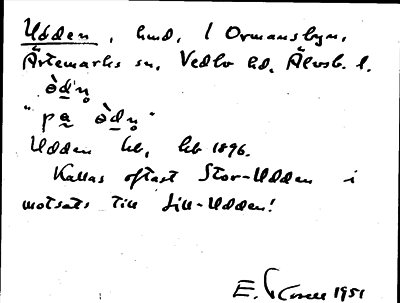 Udden, hmd, i Ormansbyn,
Ärtemarks sn, Vedbo hd, Älvsb. l.
òdn̥
"pa òdn̥"
Udden hb, hb 1896.
Kallas oftast Stor-Udden i
motsats till Lill-Udden!
E. 1951